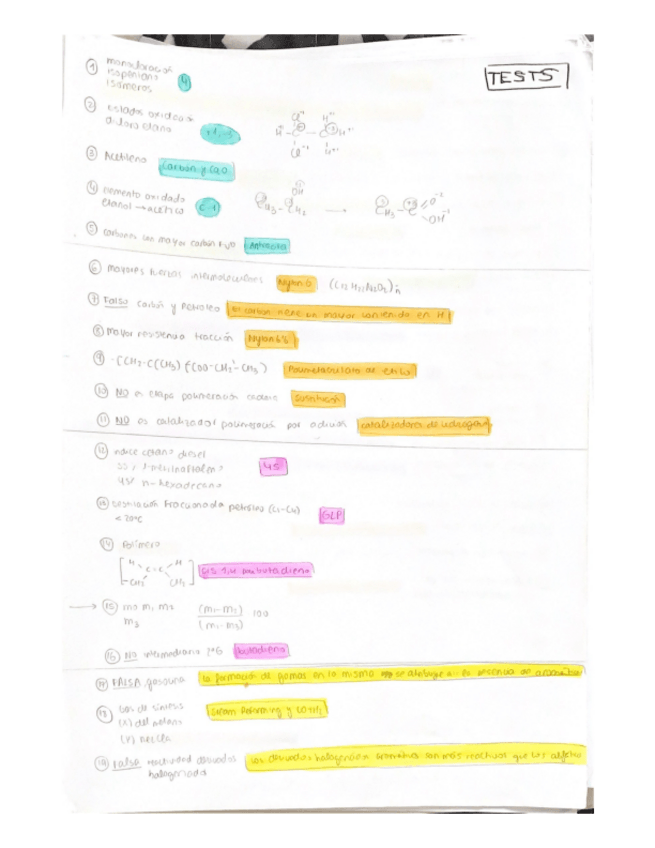 TESTS
① monocloración
isopentano
isómeros 4
② Estados oxidación
dicloro etano
H - C - C - H
③ Acetileno Carbón y CaO
④ elemento oxidado
etanol → acético C-1
OH
CH3 - CH2 → CH3 - C
O
OH
⑤ carbones con mayor carbón fijo Antracita
⑥ mayores fuerzas intermoleculares Nylon 6 (C12 H22 N2O2)n
⑦ Falso carbón y Petroleo El carbón tiene un mayor contenido en H
⑧ mayor resistencia tracción Nylon 6%
⑨ Polimetacrilato de
⑩ NO es etapa polimeración Sustitución
⑪ NO es catalizador polimeración por adición catalizadores de hidrógeno
⑫ indice cetano diesel
55% 1-metilnaftaleno
45% n-hexadecano 45
⑬ Destilación fraccionada petróleo (C1-C4)
< 20ºC GLP
⑭ Polímero
H C = C H
CH2 CH2
cis 1,4 polibutadieno
→ ⑮ m0 m1 m2
m3 100
⑯ NO intermediario 2ºG butadieno
⑰ FALSA gasolina la formación de gomas en la misma se atribuye a la presencia de aromáticos
⑱ Gas de síntesis
(X) del metano
(Y) mezcla
Steam Reforming y CO + H2
⑲ FALSA reactividad derivados
halogenada
Los derivados halogenados aromáticos son más reactivos que los